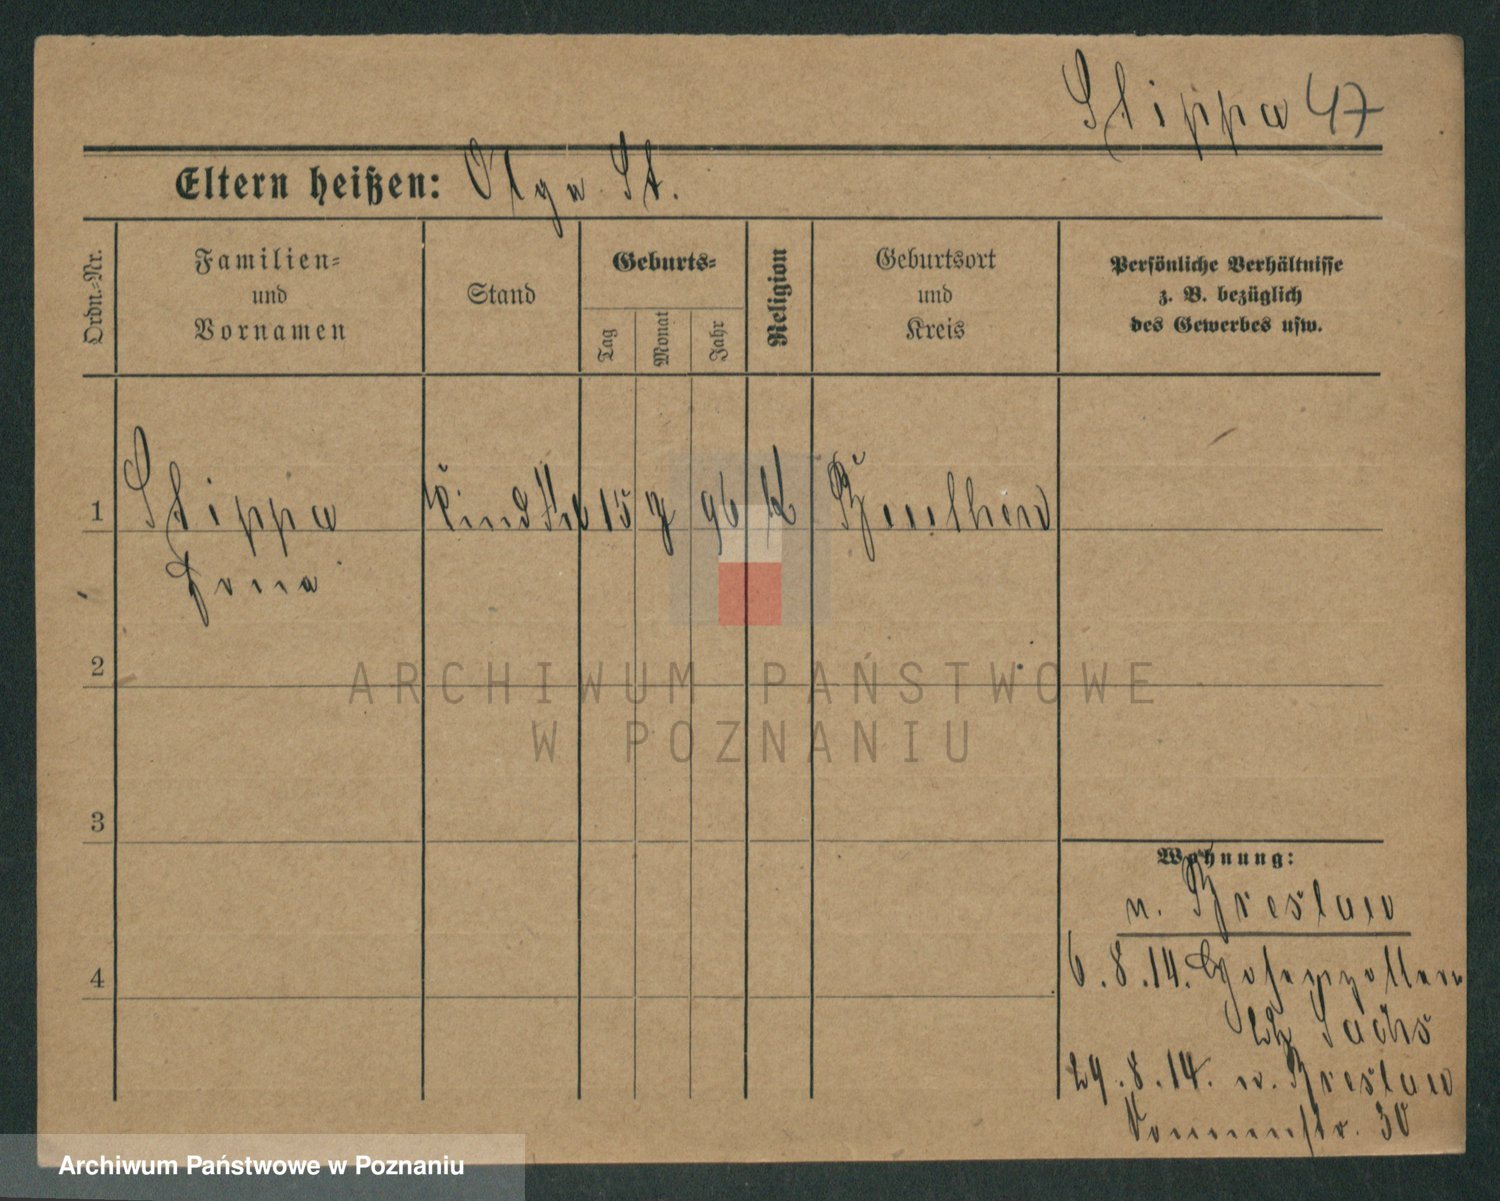 Stippa 47
Eltern heißen: Olga St.
Ordn.-Nr.
Familien-
und
Vornamen
Stand
Geburts-
Tag
Monat
Jahr
Religion
Geburtsort
und
Kreis
Persönliche Verhältnisse
z. B. bezüglich
des Gewerbes usw.
1 Stippa 15 96 Beuthen
2
ARCHIWUM PAŃSTWOWE
W POZNANIU
3
Wohnung:
n. Breslau
4
6.8.14. Hohenzollern
Sachs
29.8.14. n. Breslau
30
Archiwum Państwowe w Poznaniu